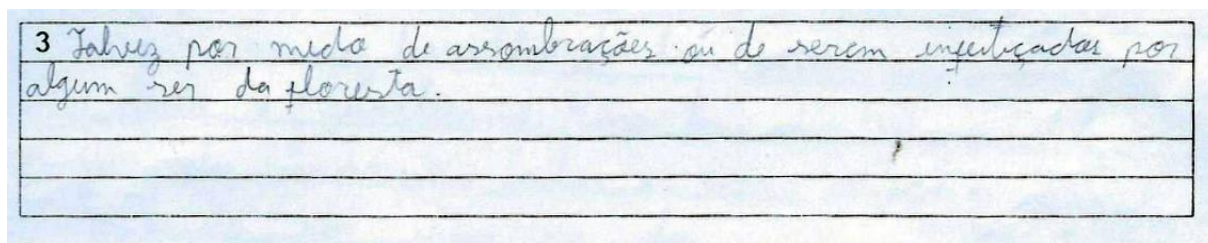 3 Talvez por medo de assombrações ou de serem enfeitiçados por
algum ser da floresta.